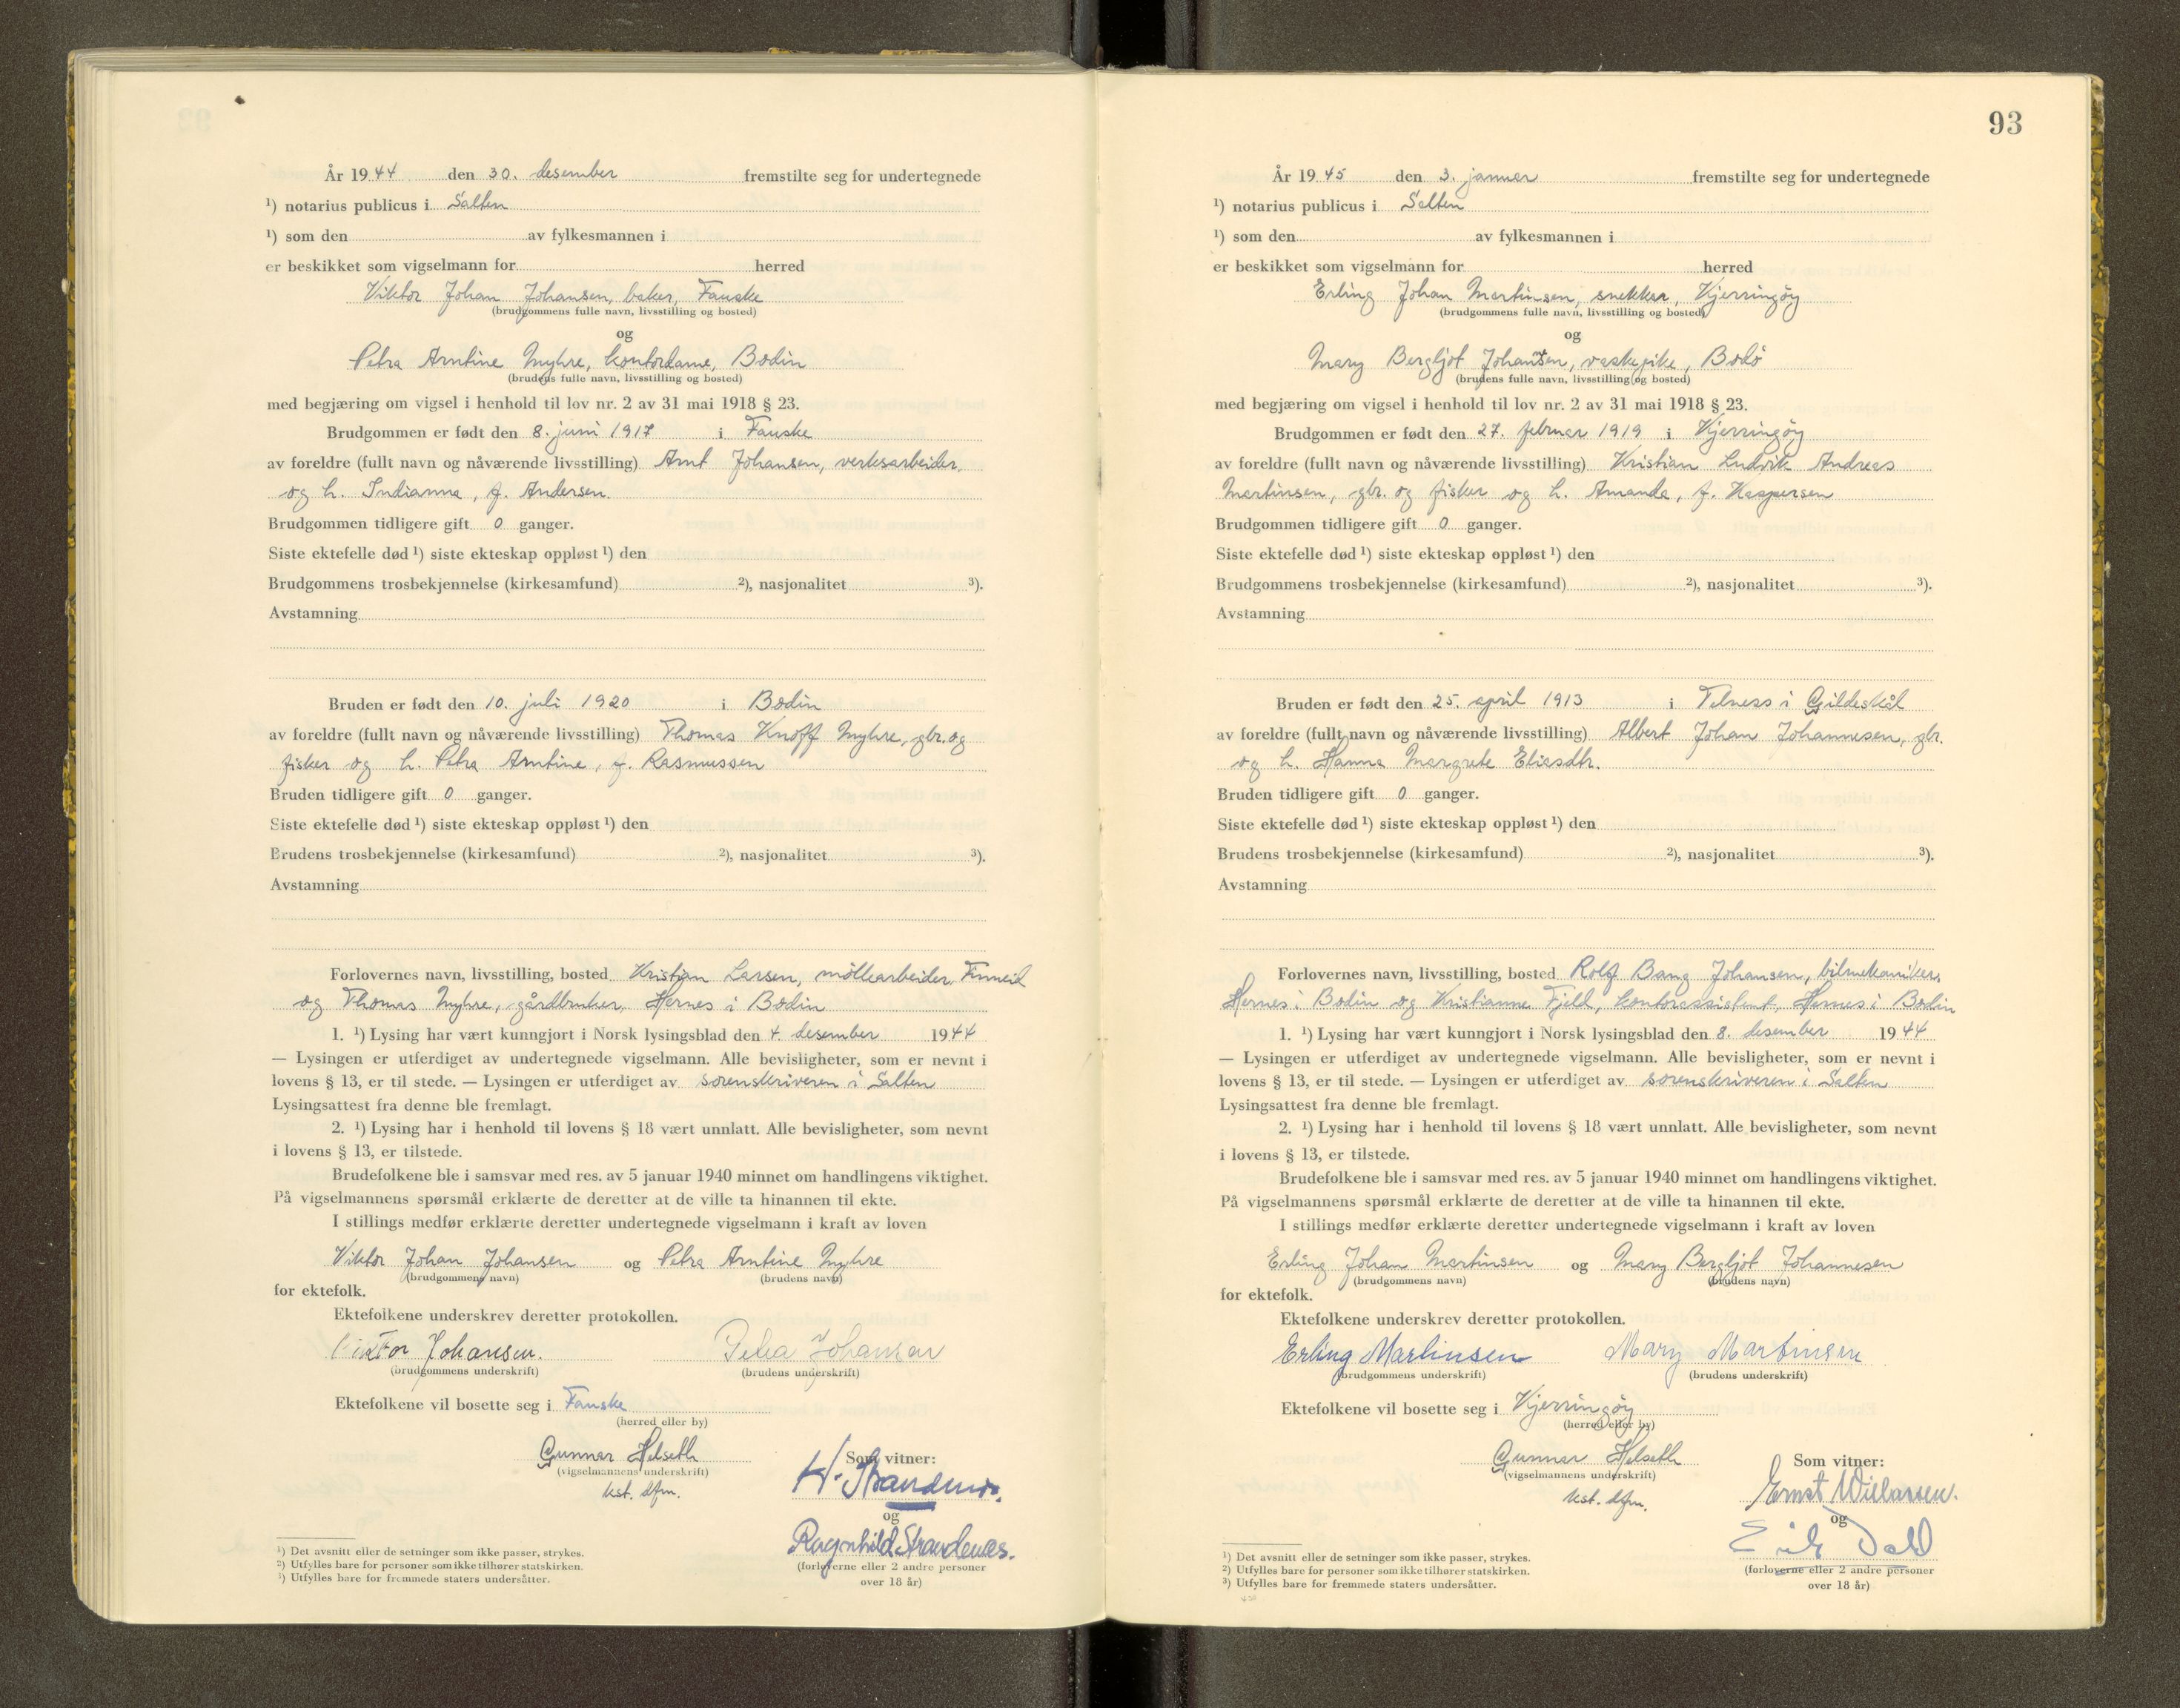 År 1944 den 30. desember fremstilte seg for undertegnede
¹) notarius publicus i Salten
¹) som den av fylkesmannen i
er beskikket som vigselmann for herred
Viktor Johan Johansen, baker, Fauske
(brudgommens fulle navn, livsstilling og bosted)
og
Petra Arntine Myhre, kontordame, Bodin
(brudens fulle navn, livsstilling og bosted)
med begjæring om vigsel i henhold til lov nr. 2 av 31 mai 1918 § 23.
Brudgommen er født den 8. juni 1917 i Fauske
av foreldre (fullt navn og nåværende livsstilling) Arnt Johansen, verksarbeider,
og h. Indianna, f. Andersen.
Brudgommen tidligere gift 0 ganger.
Siste ektefelle død ¹) siste ekteskap oppløst ¹) den
Brudgommens trosbekjennelse (kirkesamfund) ²), nasjonalitet ³).
Avstamning
Bruden er født den 10. juli 1920 i Bodin
av foreldre (fullt navn og nåværende livsstilling) Thomas Knoff Myhre, gbr. og
fisker og h. Petra Arntine, f. Rasmussen
Bruden tidligere gift 0 ganger.
Siste ektefelle død ¹) siste ekteskap oppløst ¹) den
Brudens trosbekjennelse (kirkesamfund) ²), nasjonalitet ³).
Avstamning
Forlovernes navn, livsstilling, bosted Kristian Larsen, möllearbeider, Finneid
og Thomas Myhre, gårdbruker, Hernes i Bodin
1. ¹) Lysing har vært kunngjort i Norsk lysingsblad den 4. desember 1944
— Lysingen er utferdiget av undertegnede vigselmann. Alle bevisligheter, som er nevnt i
lovens § 13, er til stede. — Lysingen er utferdiget av sorenskriveren i Salten
Lysingsattest fra denne ble fremlagt.
2. ¹) Lysing har i henhold til lovens § 18 vært unnlatt. Alle bevisligheter, som nevnt
i lovens § 13, er tilstede.
Brudefolkene ble i samsvar med res. av 5 januar 1940 minnet om handlingens viktighet.
På vigselmannens spørsmål erklærte de deretter at de ville ta hinannen til ekte.
I stillings medfør erklærte deretter undertegnede vigselmann i kraft av loven
Viktor Johan Johansen og Petra Arntine Myhre
(brudgommens navn) (brudens navn)
for ektefolk.
Ektefolkene underskrev deretter protokollen.
Viktor Johansen. Petra Johansen
(brudgommens underskrift) (brudens underskrift)
Ektefolkene vil bosette seg i Fauske
(herred eller by)
Gunnar Helseth
(vigselmannens underskrift)
kst. dfm.
Som vitner:
H. Strandenæs.
og
Ragnhild Strandenæs.
(forloverne eller 2 andre personer
over 18 år)
¹) Det avsnitt eller de setninger som ikke passer, strykes.
²) Utfylles bare for personer som ikke tilhører statskirken.
³) Utfylles bare for fremmede staters undersåtter.
93
År 1945 den 3. januar fremstilte seg for undertegnede
¹) notarius publicus i Salten
¹) som den av fylkesmannen i
er beskikket som vigselmann for herred
Erling Johan Martinsen, snekker, Kjerringöy
(brudgommens fulle navn, livsstilling og bosted)
og
Mary Bergljot Johansen, vaskepike, Bodö
(brudens fulle navn, livsstilling og bosted)
med begjæring om vigsel i henhold til lov nr. 2 av 31 mai 1918 § 23.
Brudgommen er født den 27. februar 1919 i Kjerringöy
av foreldre (fullt navn og nåværende livsstilling) Kristian Ludvik Andreas
Martinsen, gbr. og fisker og h. Amanda, f. Kaspersen
Brudgommen tidligere gift 0 ganger.
Siste ektefelle død ¹) siste ekteskap oppløst ¹) den
Brudgommens trosbekjennelse (kirkesamfund) ²), nasjonalitet ³).
Avstamning
Bruden er født den 25. april 1913 i Telness i Gildeskål
av foreldre (fullt navn og nåværende livsstilling) Albert Johan Johannesen, gbr.
og h. Hanna Margrete Eliasdtr.
Bruden tidligere gift 0 ganger.
Siste ektefelle død ¹) siste ekteskap oppløst ¹) den
Brudens trosbekjennelse (kirkesamfund) ²), nasjonalitet ³).
Avstamning
Forlovernes navn, livsstilling, bosted Rolf Bang Johansen, bilmekaniker,
Hernes i Bodin og Kristianne Fjeld, kontorassistent, Hernes i Bodin
1. ¹) Lysing har vært kunngjort i Norsk lysingsblad den 8. desember 1944
— Lysingen er utferdiget av undertegnede vigselmann. Alle bevisligheter, som er nevnt i
lovens § 13, er til stede. — Lysingen er utferdiget av sorenskriveren i Salten
Lysingsattest fra denne ble fremlagt.
2. ¹) Lysing har i henhold til lovens § 18 vært unnlatt. Alle bevisligheter, som nevnt
i lovens § 13, er tilstede.
Brudefolkene ble i samsvar med res. av 5 januar 1940 minnet om handlingens viktighet.
På vigselmannens spørsmål erklærte de deretter at de ville ta hinannen til ekte.
I stillings medfør erklærte deretter undertegnede vigselmann i kraft av loven
Erling Johan Martinsen og Mary Bergljot Johannesen
(brudgommens navn) (brudens navn)
for ektefolk.
Ektefolkene underskrev deretter protokollen.
Erling Martinsen Mary Martinsen
(brudgommens underskrift) (brudens underskrift)
Ektefolkene vil bosette seg i Kjerringöy
(herred eller by)
Gunnar Helseth
(vigselmannens underskrift)
kst. dfm.
Som vitner:
Ernst Willassen.
og
Erik Dahl
(forloverne eller 2 andre personer
over 18 år)
¹) Det avsnitt eller de setninger som ikke passer, strykes.
²) Utfylles bare for personer som ikke tilhører statskirken.
³) Utfylles bare for fremmede staters undersåtter.